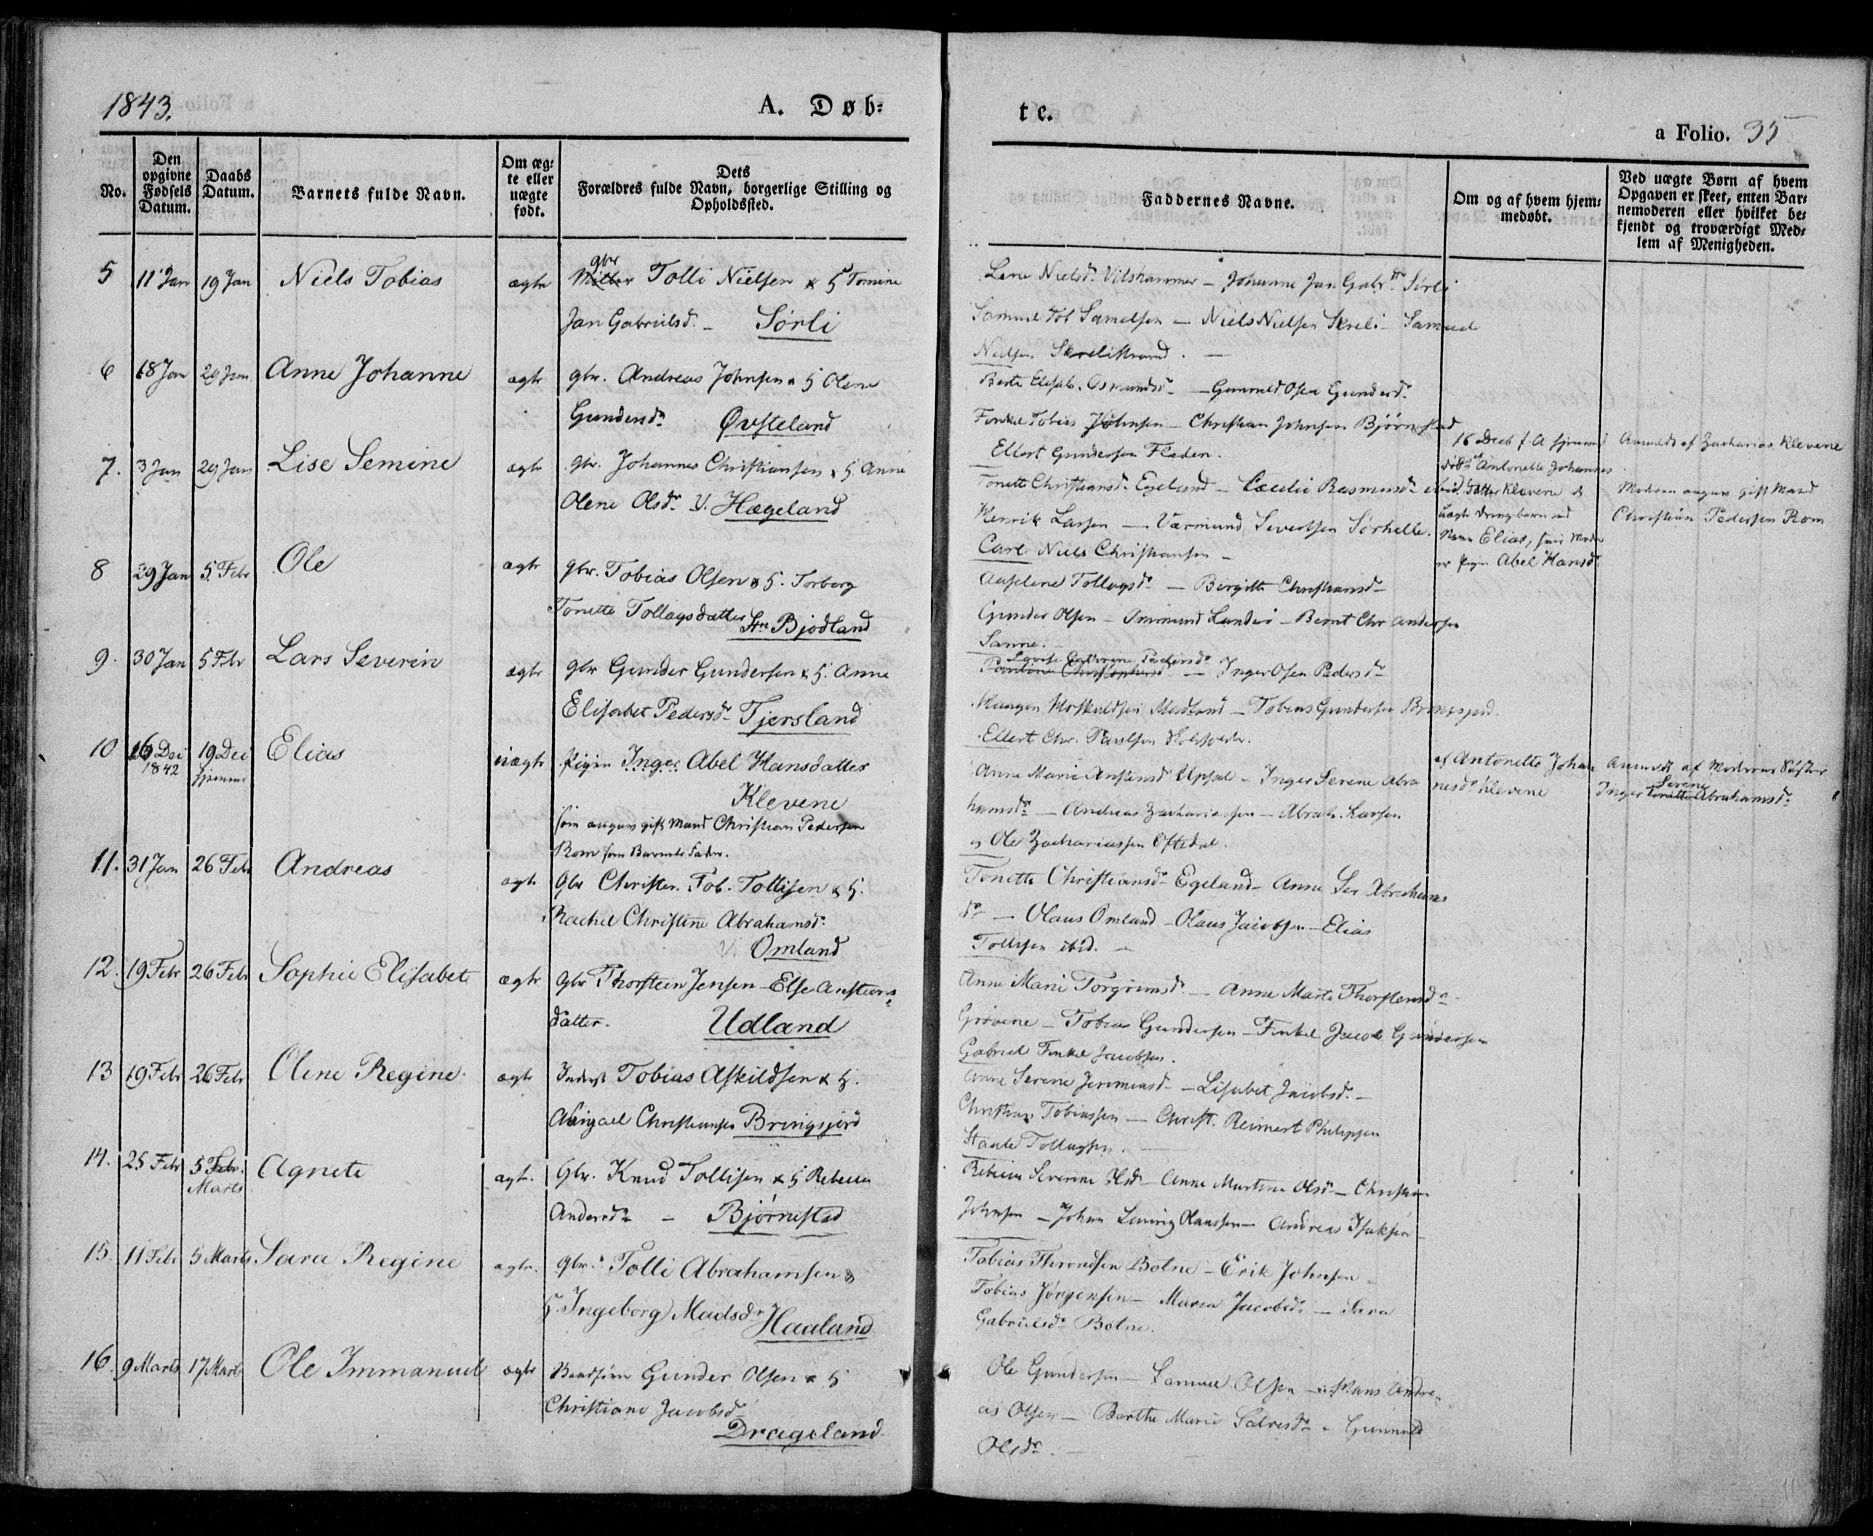 1843.
A. Døb-
te.
a Folio. 35
No.
Den opgivne Fødsels Datum.
Daabs Datum.
Barnets fulde Navn.
Om ægte eller uægte født.
Dets
Forældres fulde Navn, borgerlige Stilling og
Opholdssted.
Faddernes Navne.
Om og af hvem hjem-
medøbt.
Ved uægte Børn af hvem
Opgaven er skeet, enten Bar-
nemoderen eller hvilket be-
kjendt og troværdigt Med-
lem af Menigheden.
5 11 Jan 19 Jan Niels Tobias ægte gbr Tolli Nielsen & H Tomine
Jan Gabrielsd. Sørli
Lene Nielsd. Vilshammer - Johanne Jan Gabr. Sørli
Samuel Tob Samelsen - Niels Nielsen Skreli - Samuel
Nielsen Skrelistrand.
6 18 Jan 29 Jan Anne Johanne ægte gbr. Andreas Johnsen & H Olene
Gundersd. Øvsteland
Berte Elisab. Osmundsd. - Gunnild Osea Gundersd.
Finkel Tobias Johnsen - Christian Johnsen Bjørnestad
Ellert Gundersen Fladen.
7. 3 Jan 29 Jan Lise Semine ægte gbr. Johannes Christiansen & H Anne
Olene Olsd. V. Hægeland
Tonette Christiansd. Egeland - Cecilie Rasmusd. ibid.
Henrik Larsen - Værmund Severtsen Sørhelle.
Carl Niels Christiansen -
16 Decb f. A hjemmed
døbt af Antonette Johannes
datter Klevene et
uægte drengebarn ved
Navn Elias, hvis Moder
er pigen Abel Hansd.
Anmeldt af Zacharias Klevene
Moderen angav gift Mand
Christian Pedersen Rom
8 29 Jan 5. Febr Ole ægte gbr. Tobias Olsen & H. Torborg
Tonette Tollagsdatter Str. Bjodland
Aaselene Tollagsd. - Bergitte Christiansd. -
Gunder Olsen - Ommund - Bernt Chr Andersen
Sanne.
9. 30 Jan 5 Febr Lars Severin ægte gbr Gunder Gundersen & H. Anne
Elisabet Pedersd. Tjersland
Lovise Cathrine Pedersd.
- Inger Osea Pedersd.
Haagen Madland - Tobias Gundersen Bringsjord.
Ellert Chr. Paulsen
10 16 Dec 1842 19 Dec hjemme Elias uægte Pigen Inger Abel Hansdatter
Klevene
som angav gift Mand Christian Pedersen
Rom som Barnets Fader.
Anne Marie Upsal - Inger Serene Abra
hamsd. - Andreas Zachariassen - Abrah. Larsen
og Ole Zachariassen Oftedal.
af Antonette Johan
nesd. Klevene
Anmeldt af Moderens Søster
Inger Serene Abrahamsd.
11. 31 Jan 26 Febr Andreas ægte Gbr Christen Tob. Tollisen & H.
Rachel Christine Abrahamsd.
V. Omland
Tonette Christiansd. Egeland - Anne Ser Abrahams
d. - Olaus Omland - Olaus Jacobsen - Elias
Tollisen ibid. -
12. 19 Febr 26 Febr Sophie Elisabet ægte gbr Thorsteen Jensen - Else Ansteens-
datter. Udland
Anne Marie Torgrimsd. - Anne Marte Thorstensd.
Grøvene - Tobias Gundersen - Finkel Jacob Gundersen
Gabriel Finkel Jacobsen.
13 19 Febr 26 Febr Olene Regine ægte Inderst Tobias Askildsen & H.
Abigael Christiansen Bringsjord
Anne Serene Jemmensd. - Lisabet Jacobsd. -
Christian Tobiassen - Christ. Reimert Philipsen
Staale Tollagsen.
14. 25 Febr 5 Febr. Marts Agnete ægte. Gbr. Knud Tollisen & H Rebecca
Andersd. - Bjørnestad
Rebecca Severine Olsd. - Anne Martine Olsd. - Christian
Johnsen - Johan Hanssen - Andreas Isaksen
15. 11 Febr 5 Marts Sara Regine ægte. gbr. Tolli Abrahamsen &
H. Ingeborg Madsd. Haaland
Tobias Throndsen Botne - Erik Johnsen
Tobias Jørgensen - Maria Jacobsd. - Sara
Gabrielsd. Botne.
16. 9 Marts 17 Marts Ole Immanuel ægte Gunder Olsen & H
Christiane Jacobsd.
Drageland
Ole Gundersen - Samuel Olsen - Hans Andre-
as Olsen - Berthe Marie Salvesd. - Gunnild
Olsd. -